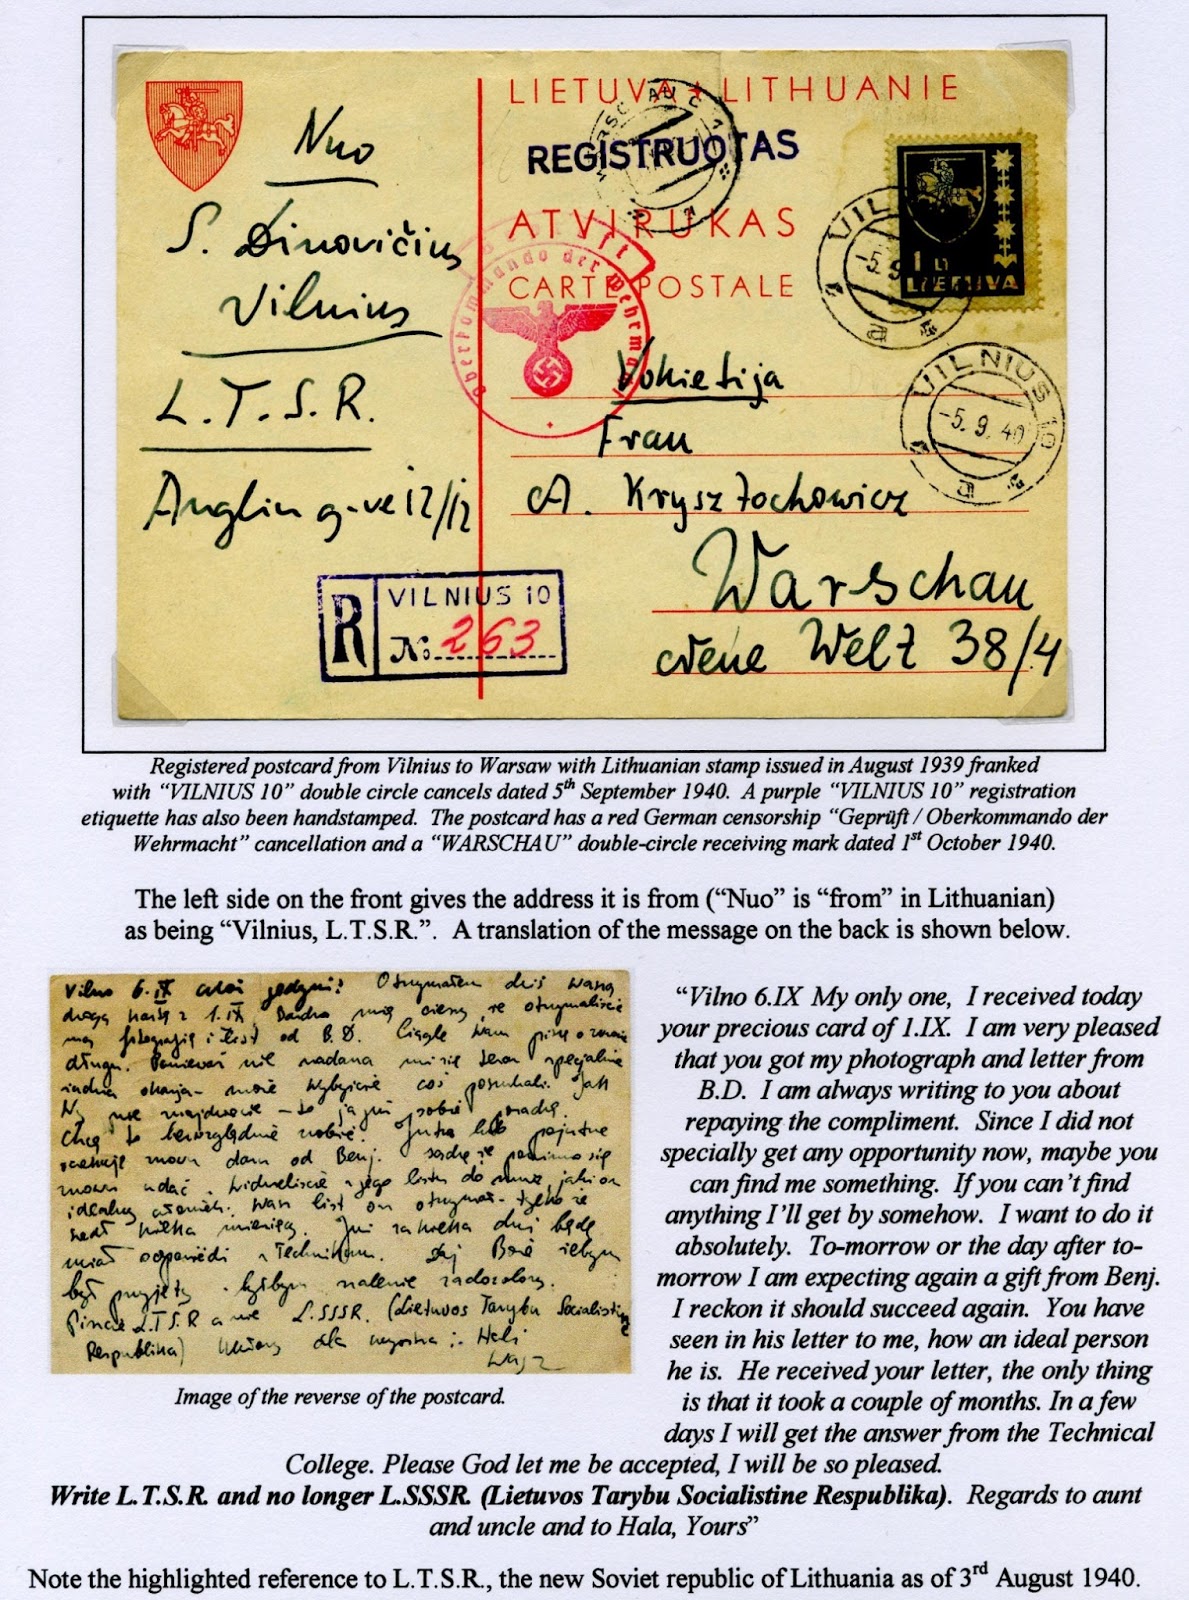 LIETUVA + LITHUANIE
REGISTRUOTAS
ATVIRUKAS
CARTE POSTALE
WARSCHAU C1
Geprüft
Oberkommando der Wehrmacht
1 LT
LIETUVA
VILNIUS 10
-5.9.40
Nuo
S. Dinovičius
Vilnius
L.T.S.R.
Anglių g-ve 12/12
Vokietija
Frau
A. Krysztochowicz
Warschau
Neue Welt 38/4
R VILNIUS 10
No 263
Registered postcard from Vilnius to Warsaw with Lithuanian stamp issued in August 1939 franked
with “VILNIUS 10” double circle cancels dated 5th September 1940. A purple “VILNIUS 10” registration
etiquette has also been handstamped. The postcard has a red German censorship “Geprüft / Oberkommando der
Wehrmacht” cancellation and a “WARSCHAU” double-circle receiving mark dated 1st October 1940.
The left side on the front gives the address it is from (“Nuo” is “from” in Lithuanian)
as being “Vilnius, L.T.S.R.”. A translation of the message on the back is shown below.
Vilno 6.IX jedyni! Otrzymałem dziś waszą
drogą kartę z 1.IX. Bardzo mię cieszy, że otrzymaliście
fotografię i list od B.D. Ciągle Wam piszę o
długu. Ponieważ nie nadana mi się teraz specjalnie
żadna okazja - może wybyście coś poszukali. Jak
Wy nie znajdziecie - to ja już sobie poradzę.
Chcę to bezwzględnie zrobić. Jutro lub pojutrze
oczekuję znowu daru od Benj. sądzę że powinno się
znowu udać. Widzieliście z jego listu do mnie, jaki on
idealny człowiek. Wasz list on otrzymał - tylko że
szedł kilka miesięcy. Już za kilka dni będę
miał odpowiedź z Technikum. Daj Boże żebym
był przyjęty - byłbym szalenie zadowolony.
Piszcie L.T.S.R a nie L.SSSR. (Lietuvos Tarybu Socialistine
Respublika) dla wujostwa i Hali
Image of the reverse of the postcard.
“Vilno 6.IX My only one, I received today
your precious card of 1.IX. I am very pleased
that you got my photograph and letter from
B.D. I am always writing to you about
repaying the compliment. Since I did not
specially get any opportunity now, maybe you
can find me something. If you can’t find
anything I’ll get by somehow. I want to do it
absolutely. To-morrow or the day after to-
morrow I am expecting again a gift from Benj.
I reckon it should succeed again. You have
seen in his letter to me, how an ideal person
he is. He received your letter, the only thing
is that it took a couple of months. In a few
days I will get the answer from the Technical
College. Please God let me be accepted, I will be so pleased.
Write L.T.S.R. and no longer L.SSSR. (Lietuvos Tarybu Socialistine Respublika). Regards to aunt
and uncle and to Hala, Yours”
Note the highlighted reference to L.T.S.R., the new Soviet republic of Lithuania as of 3rd August 1940.